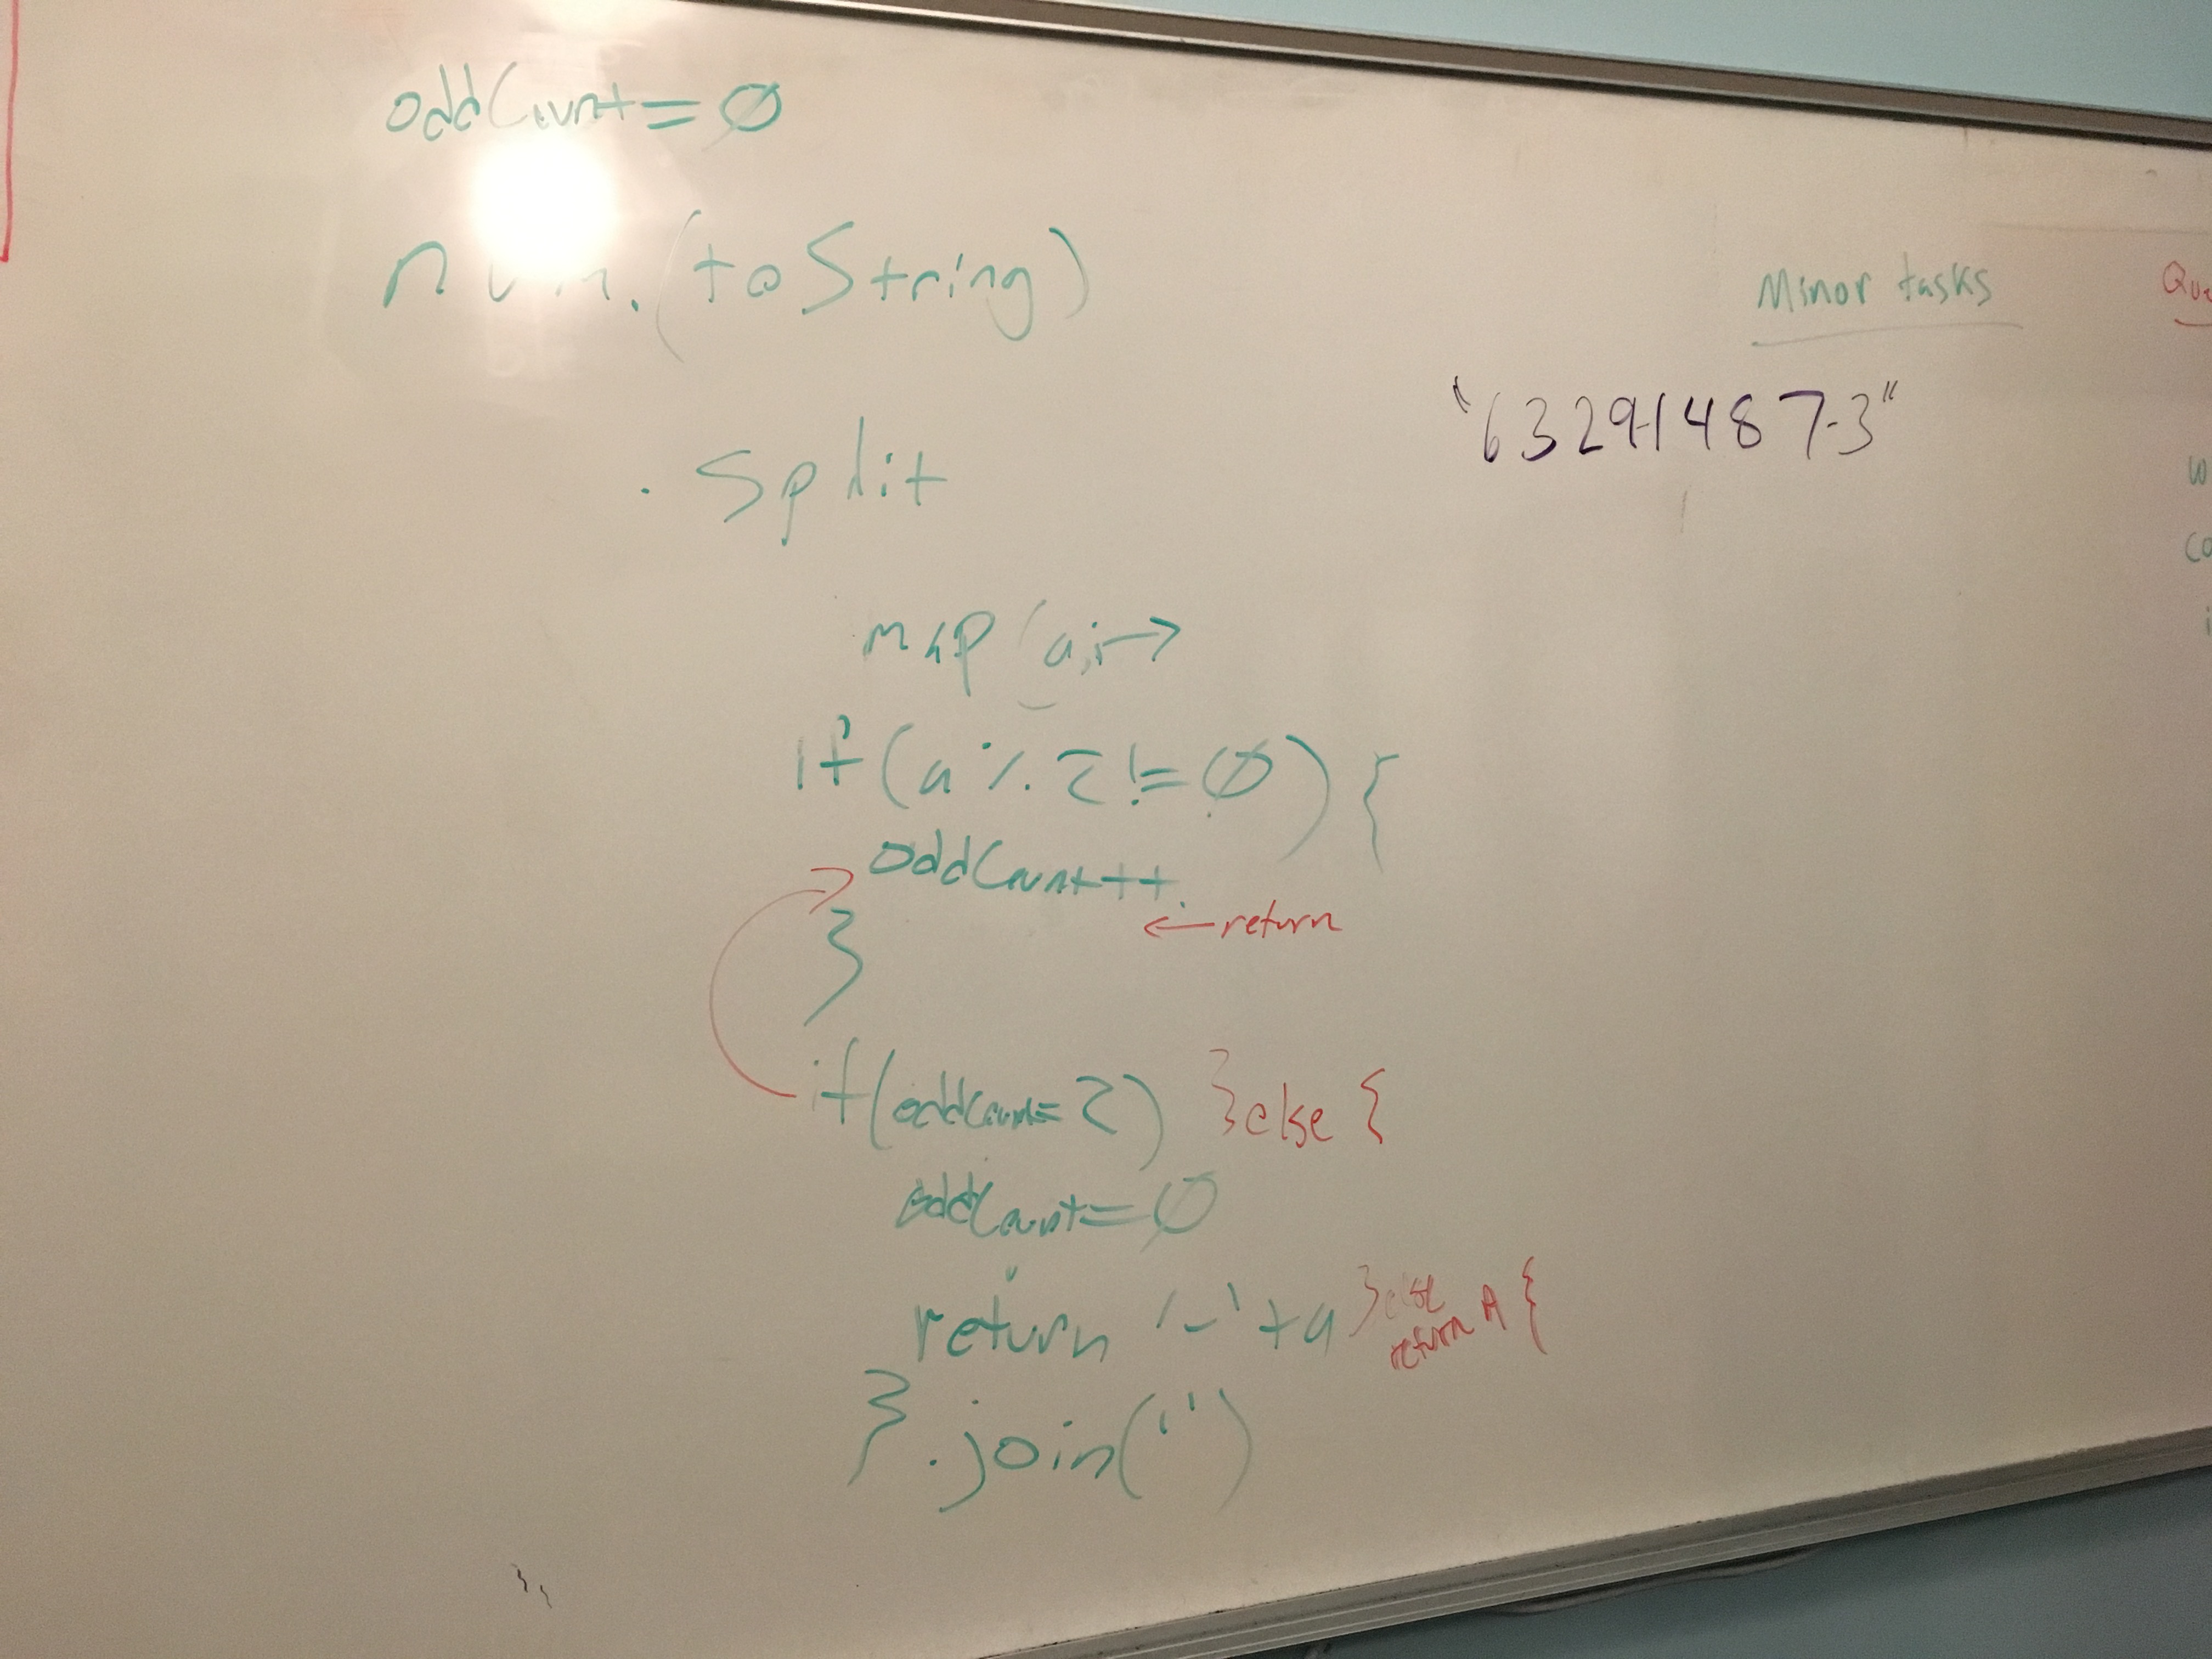 oddCount=0
num.(toString)
.split
map(a,i→
if(a%2!=0){
oddCount++
←return
}
if(oddCount=2) }else{
oddCount=0
return '-'+a }else
return A{
}.join('')
Minor tasks
"6329-1487-3"
Que
w
co
i